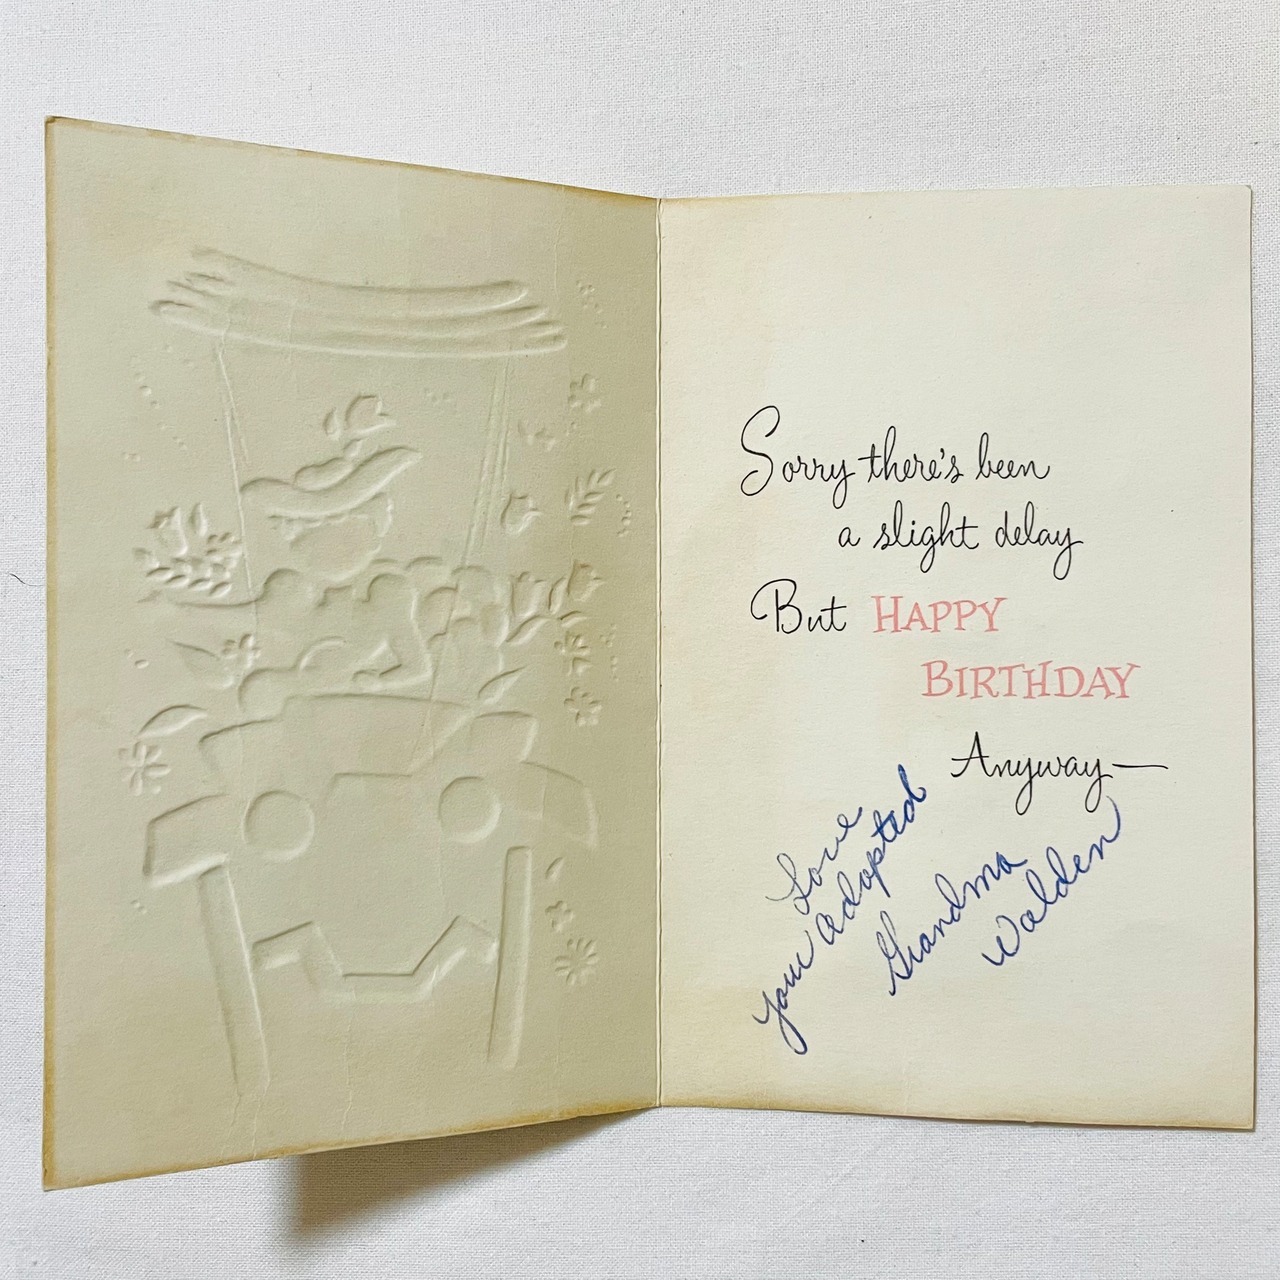 Sorry there's been
a slight delay
But HAPPY
BIRTHDAY
Anyway—
Love
your adopted
Grandma
Walden